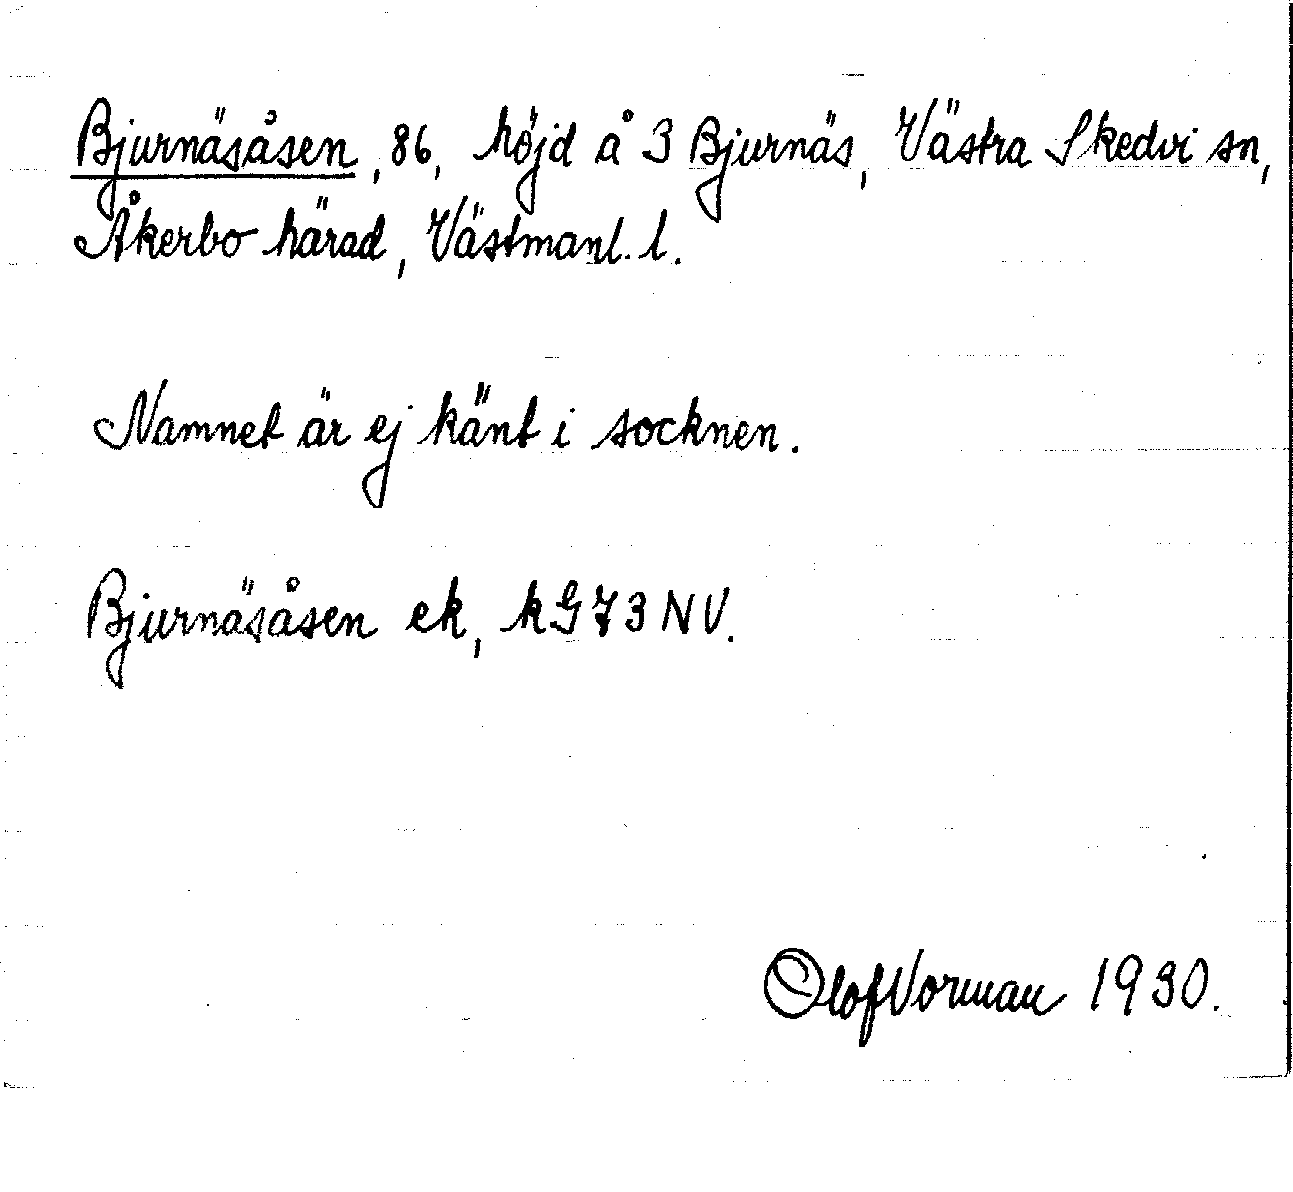 Bjurnäsåsen, 86, höjd å 3 Bjurnäs, Västra Skedvi sn,
Åkerbo härad, Västmanl. l.
Namnet är ej känt i socknen.
Bjurnäsåsen ek, kG73NV.
Olof Vorman 1930.